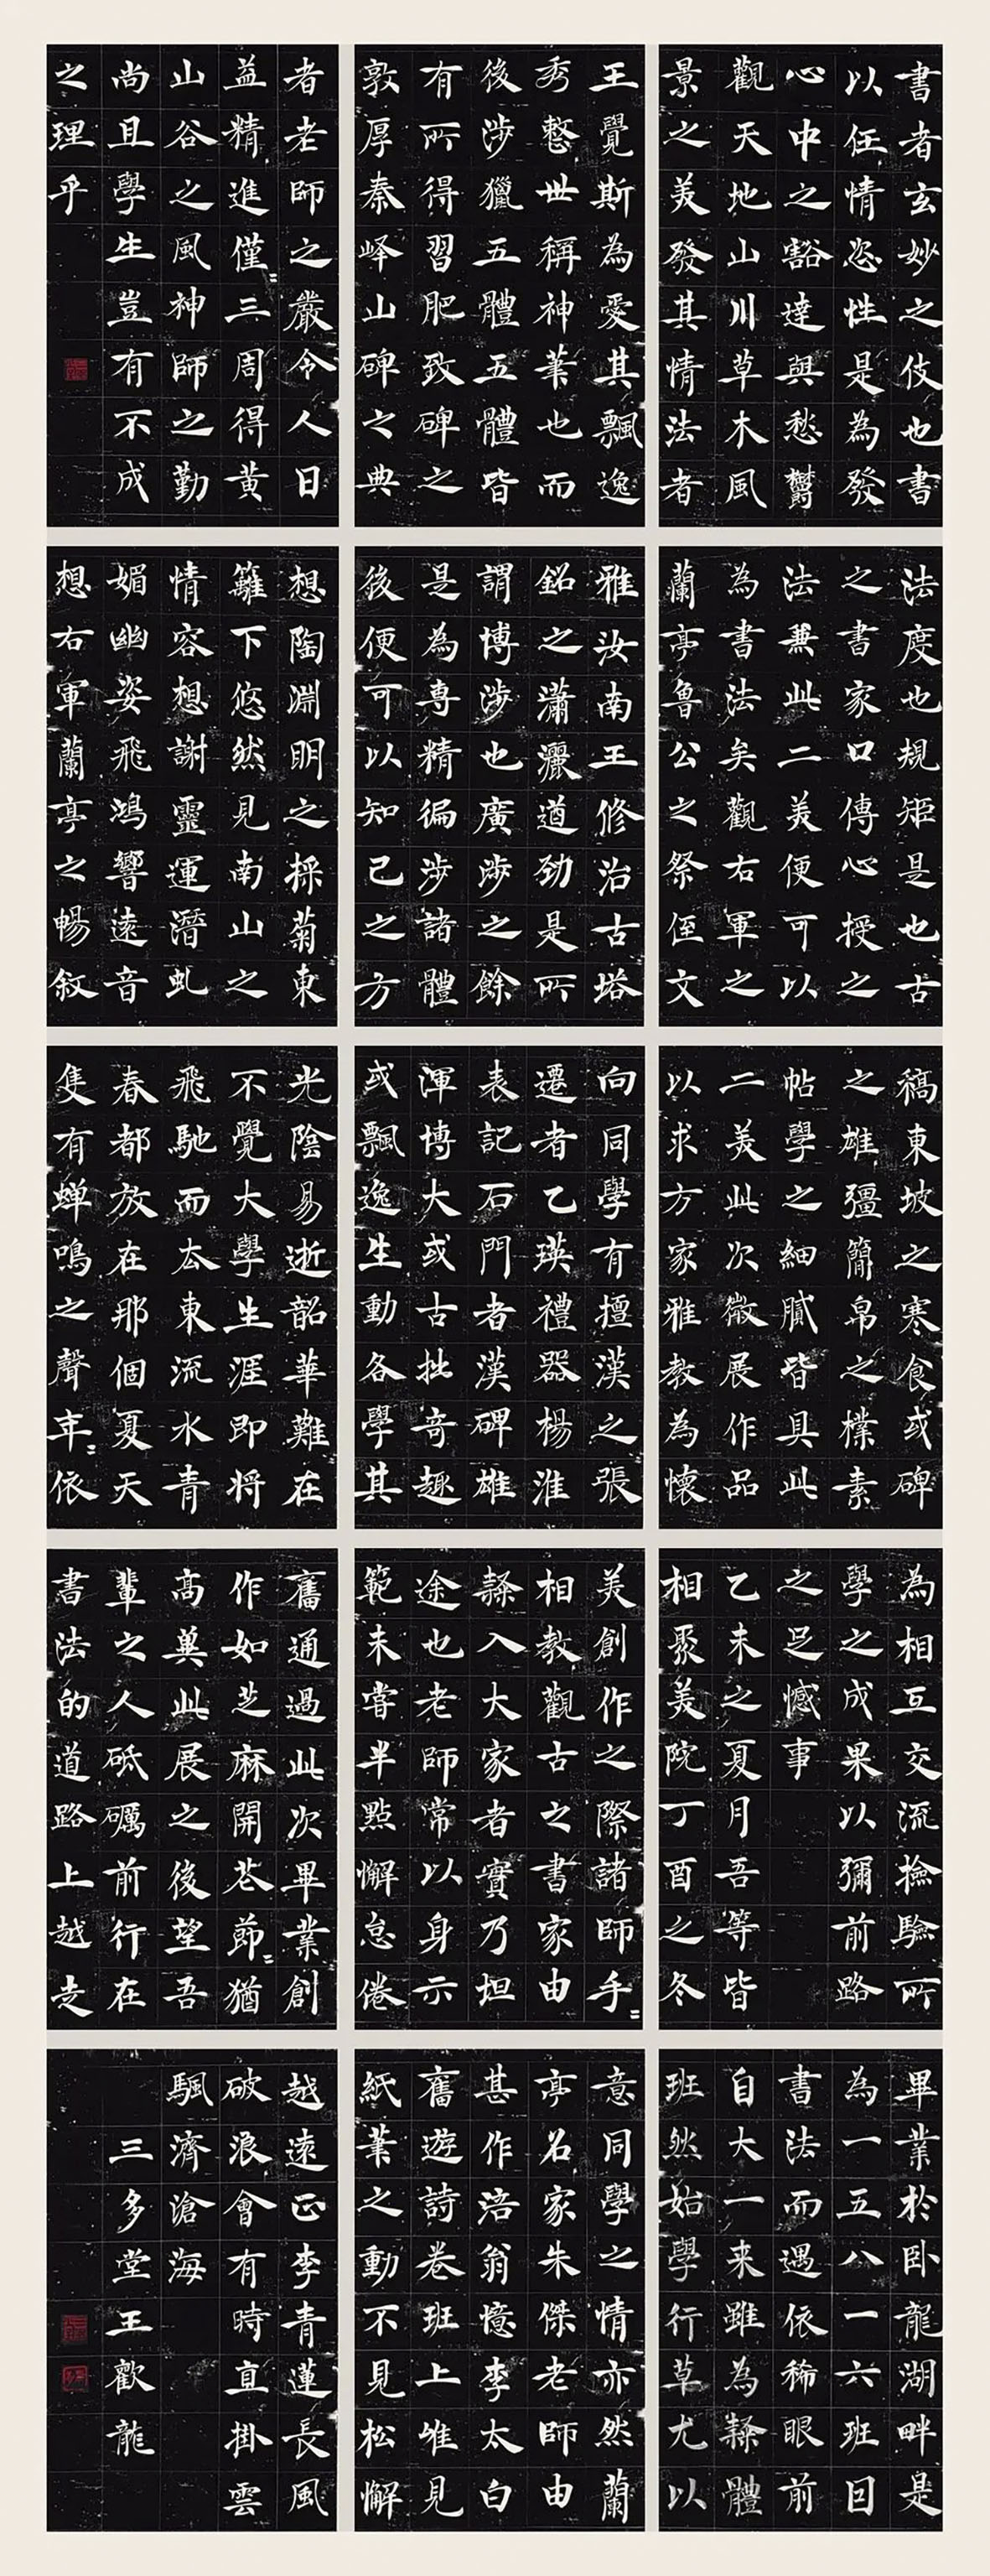 書者玄妙之伎也書
以任情恣性是為發
心中之豁達與愁鬱
觀天地山川草木風
景之美發其情法者
法度也規矩是也古
之書家口傳心授之
法兼此二美便可以
為書法矣觀右軍之
蘭亭魯公之祭侄文
稿東坡之寒食或碑
之雄彊簡帛之樸素
帖學之細膩皆具此
二美此次微展作品
以求方家雅教為懷
為相互交流撿驗所
學之成果以彌前路
之足憾事
乙未之夏月吾等皆
相聚美院丁酉之冬
畢業於卧龍湖畔是
為一五八一六班回
書法而遇依稀眼前
自大一来雖為隸體
班然始學行草尤以
王覺斯為愛其飄逸
秀憨世稱神筆也而
後涉獵五體五體皆
有所得習肥致碑之
敦厚秦峄山碑之典
雅汝南王修治古塔
銘之瀟灑遒劲是所
謂博涉也廣涉之餘
是為専精徧涉諸體
後便可以知己之方
向同學有擅漢之張
遷者乙瑛禮器楊淮
表記石門者漢碑雄
渾博大或古拙奇趣
或飄逸生動各學其
美創作之際諸師手〻
相教觀古之書家由
隸入大家者實乃坦
途也老師常以身示
範未嘗半點懈怠倦
意同學之情亦然蘭
亭名家朱傑老師由
甚作涪翁憶李太白
舊遊詩卷班上唯見
紙筆之動不見松懈
者老師之嚴令人日
益精進僅〻三周得黄
山谷之風神師之勤
尚且學生豈有不成
之理乎
想陶淵明之採菊東
籬下悠然見南山之
情容想謝靈運潛虬
媚幽姿飛鴻響遠音
想右軍蘭亭之暢叙
光陰易逝韶華難在
不覺大學生涯即将
飛馳而去東流水青
春都放在那個夏天
隻有蝉鳴之聲年〻依
舊通過此次畢業創
作如芝麻開花節〻猶
高兾此展之後望吾
輩之人砥礪前行在
書法的道路上越走
越遠正李青蓮長風
破浪會有時直掛雲
颿濟滄海
三多堂王歡龍